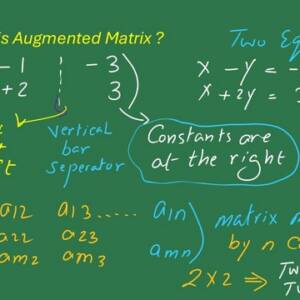 is Augmented Matrix ?
Two Eq
- 1 - 3
+ 2 3
x - y = -
x + 2y =
Vertical
bar
seperator
Constants are
at the right
a12 a13 ...... a1n
a22 a23
am2 am3 amn
matrix
by n
2 x 2 ⇒ Tw